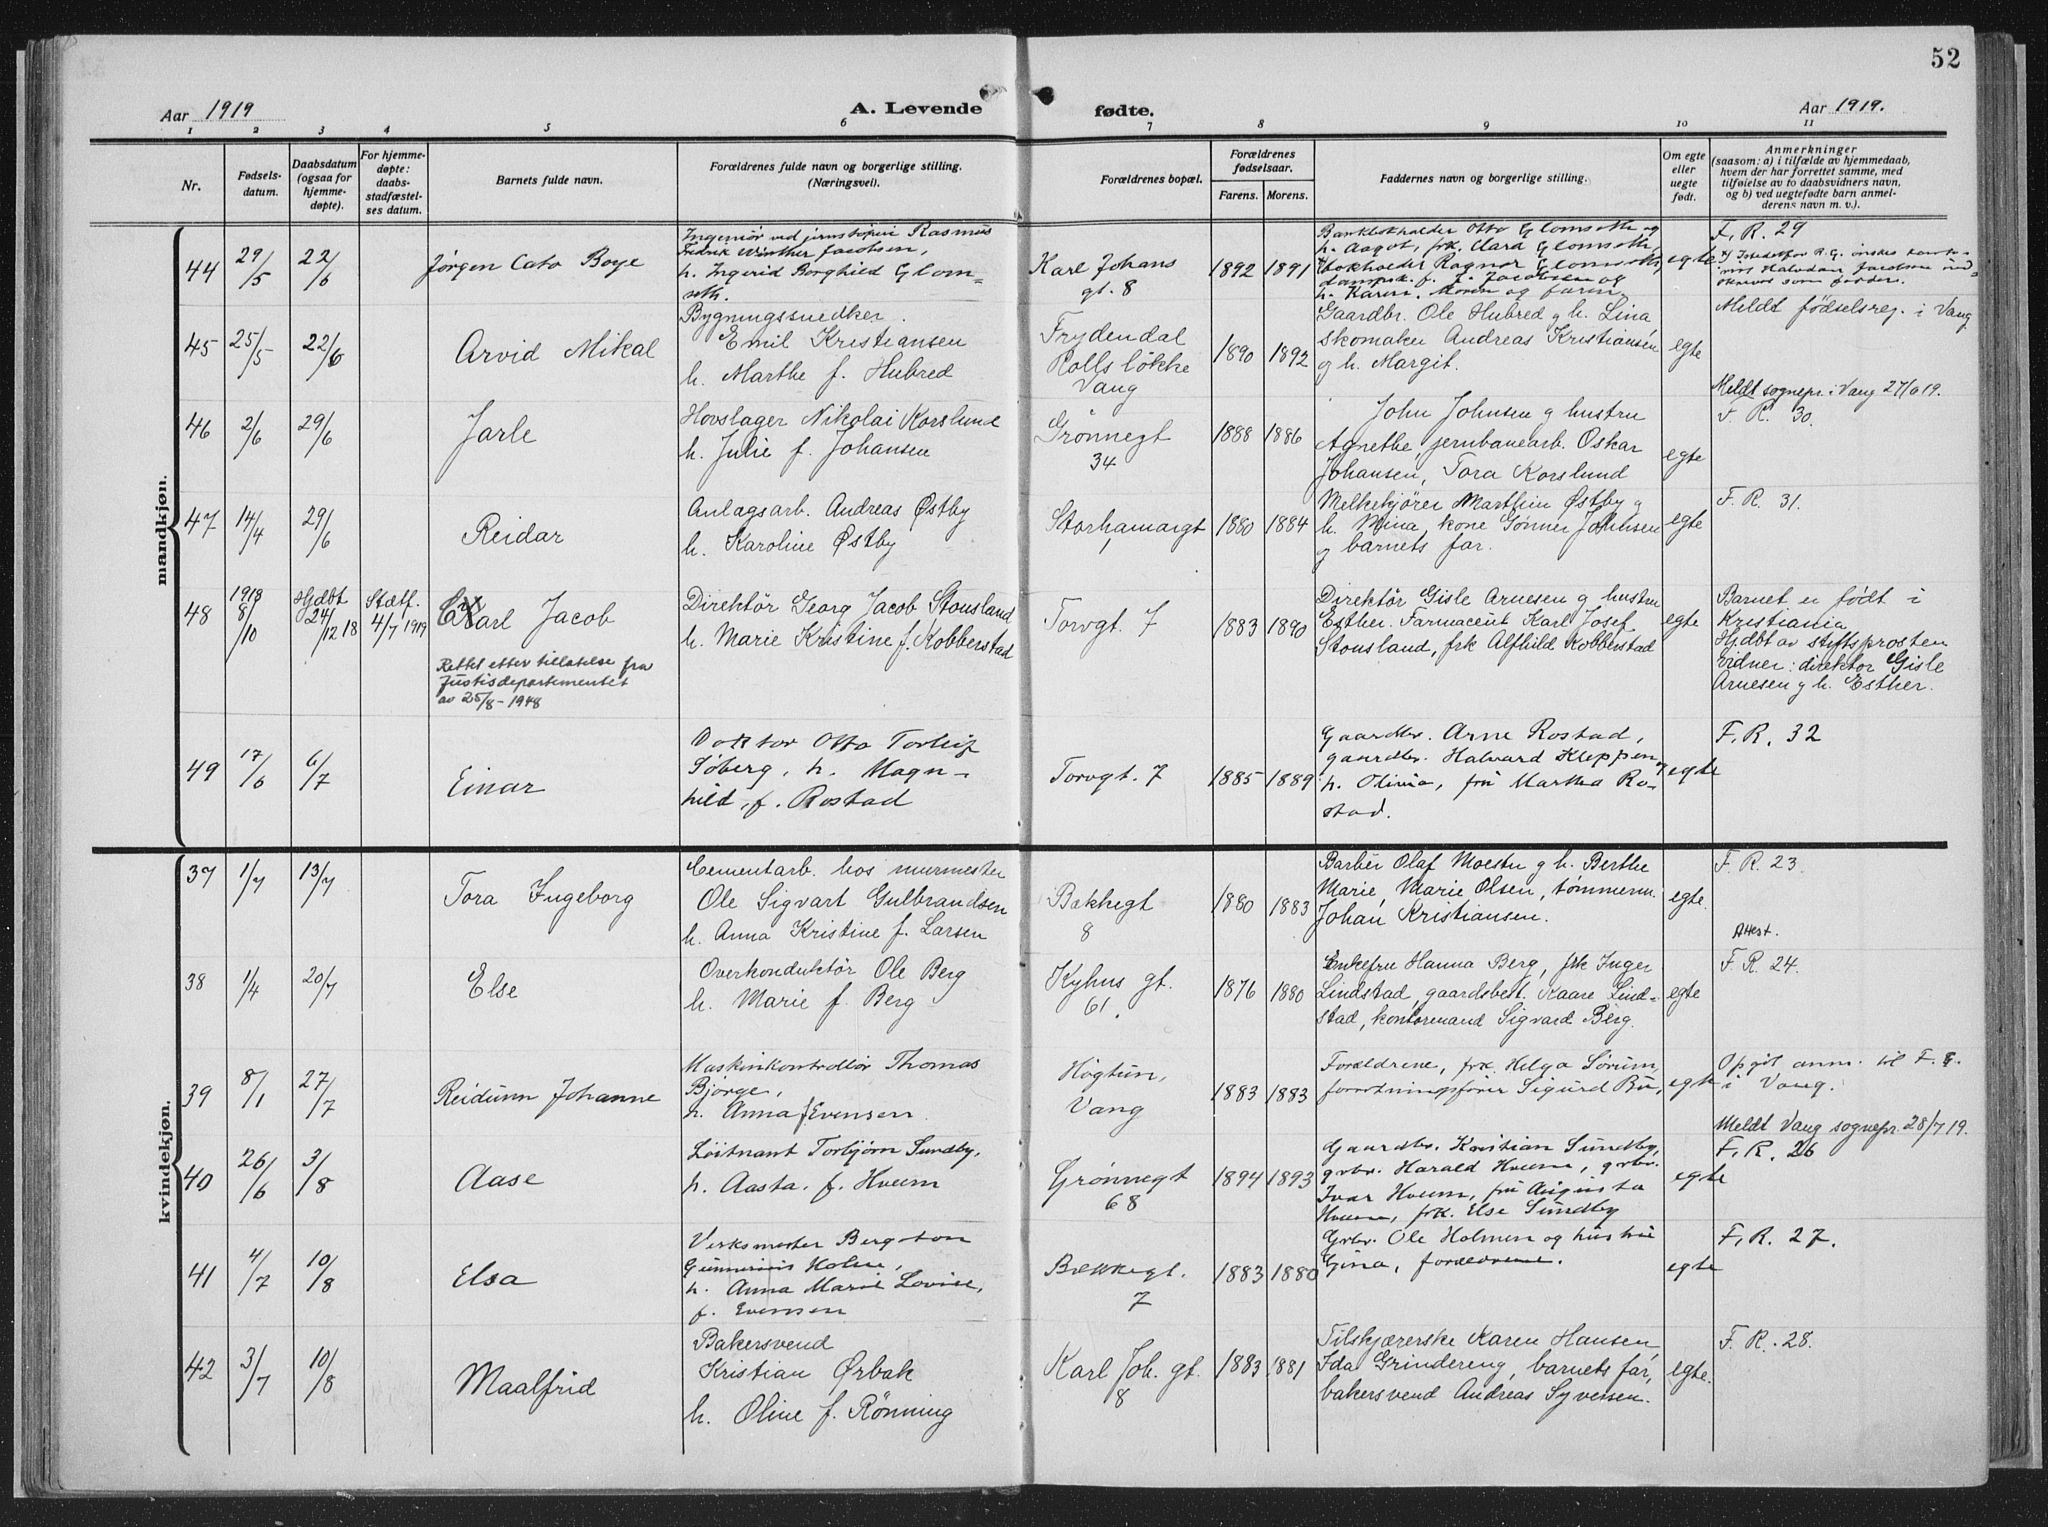 52
Aar 1919
A. Levende
fødte.
Aar 1919.
1 2 3 4 5 6 7 8 9 10 11
Nr.
Fødsels-
datum.
Daabsdatum
(ogsaa for
hjemme-
døpte).
For hjemme-
døpte:
daabs-
stadfæstel-
ses datum.
Barnets fulde navn.
Forældrenes fulde navn og borgerlige stilling.
(Næringsvei).
Forældrenes bopæl.
Forældrenes
fødselsaar.
Farens. Morens.
Faddernes navn og borgerlige stilling.
Om egte
eller
uegte
født.
Anmerkninger
(saasom: a) i tilfælde av hjemmedaab,
hvem der har forrettet samme, med
tilføielse av to daabsvidners navn,
og b) ved uegtefødte barn anmel-
derens navn m. v.).
mandkjøn.
44
29/5
22/6
Jørgen Cato Boye
Ingeniør ved jernstøperi Rasmus
Fredrik Winther Jacobsen,
h. Ingerid Borghild Glom-
seth.
Karl Johans
gt. 8
1892 1891
Bankbokholder Otto Glomseth og
h. Aagot, frk. Clara Glomseth,
Bokholder Ragnar Glomseth,
f. J. Jacobsen og
h. Karen. Moren og faren.
egte
F. R. 29
Istedetfor R. G. ønskes
Halvdan Jacobsen ind-
skrevet som fadder.
45
25/5
22/6
Arvid Mikal
Bygningssnedker
Emil Kristiansen
h. Marthe f. Hubred
Frydendal
Rolls løkke
Vang
1890 1892
Gaardbr. Ole Hubred g h. Lina
Skomaker Andreas Kristiansen
g h. Margit.
egte
Meldt fødselsreg. i Vang
Meldt sognepr. i Vang 27/6 19.
46
2/6
29/6
Jarle
Hovslager Nikolai Korslund
h. Julie f. Johansen
Grønnegt
34
1888 1886
John Johnsen g hustru
Agnethe, jernbanearb. Oskar
Johansen, Tora Korslund
egte
F. R. 30.
47
14/4
29/6
Reidar
Anlagsarb. Andreas Østby
h. Karoline Østby
Storhamargt
1
1880 1884
Melkekjører Marthin Østby g
h. Mina, kone Gønner Johnsen
g barnets far.
egte
F. R. 31.
48
1918
8/10
Hjdbt
24/12 18
Stætf.
4/7 1919
Carl Jacob
Rettet etter tillatelse fra
Justisdepartementet
av 25/8-1948
Direktør Georg Jacob Stousland
h. Marie Kristine f. Kobberstad
Torvgt. 7
1883 1890
Direktør Gisle Arnesen g hustru
Esther. Farmaceut Karl Josef
Stousland, frk Alfhild Kobberstad
egte
Barnet er født i
Kristiania
Hjdbt av stiftsprosten
Vidner: direktør Gisle
Arnesen g h. Esther.
49
17/6
6/7
Einar
Doktor Otto Torleif
Søberg, h. Magn-
hild, f. Rostad
Torvgt. 7
1885 1889
Gaardbr. Arne Rostad,
gaardbr. Halvard Kleppen og
h. Olivia, frü Martha Ro-
stad.
egte
F. R. 32
kvindekjøn.
37
1/7
13/7
Tora Ingeborg
Cementarb. hos murmester
Ole Sigvart Gulbrandsen
h. Anna Kristine f. Larsen
Bækkegt
8
1880 1883
Barber Olaf Moestu g h. Berthe
Marie, Marie Olsen, tømmerm.
Johan Kristiansen.
egte.
F. R. 23.
Attest.
38
1/4
20/7
Else
Overkonduktør Ole Berg
h. Marie f. Berg
Kyhus gt.
61.
1876 1880
Enkefru Hanna Berg, frk Inger
Lindstad, gaardsbest. Kaare Lind-
stad, kontormand Sigvard Berg.
egte
F. R. 24.
39
8/1
27/7
Reidunn Johanne
Maskinkontrollør Thomas
Bjørge,
h. Anna f. Evensen.
Høgtun,
Vang
1883 1883
Forældrene, frk. Helga Sørum,
forretningsfører Sigurd Bu,
egte
Opgit anm. til F. R.
i Vang.
Meldt Vang sognepr. 28/7 19.
40
26/6
3/8
Aase
Løitnant Torbjørn Sundby,
h. Aasta. f. Hveem
Grønnegt
68
1894 1893
Gaardbr. Kristian Sundby,
grbr. Harald Hveem, grbr.
Ivar Hveem, frü Augusta
Hveem, frk. Else Sundby
egte
F. R. 26
41
4/7
10/8
Elsa
Verksmester Bergston
Gunnerius Holm,
h. Anna Marie Lovise,
f. Evensen
Bækkegt.
7
1883 1880
Grbr. Ole Holmen og hustru
Gina, forældrene.
egte
F. R. 27.
42
3/7
10/8
Maalfrid
Bakersvend
Kristian Ørbak
h. Oline f. Rønning
Karl Joh. gt.
8
1883 1881
Tilskjærerske Karen Hansen,
Ida Grindereng, barnets far,
bakersvend Andreas Syversen.
egte.
F. R. 28.